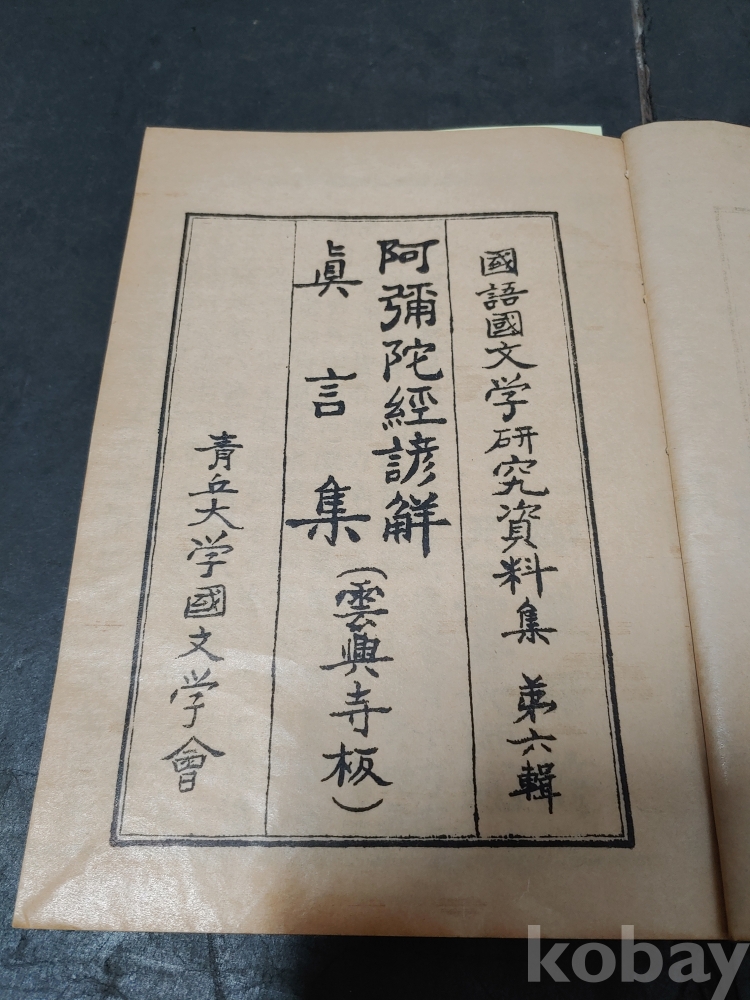 國語國文学研究資料集 第六輯
阿彌陀經諺解
眞言集(雲興寺板)
青丘大学國文学會
kobay